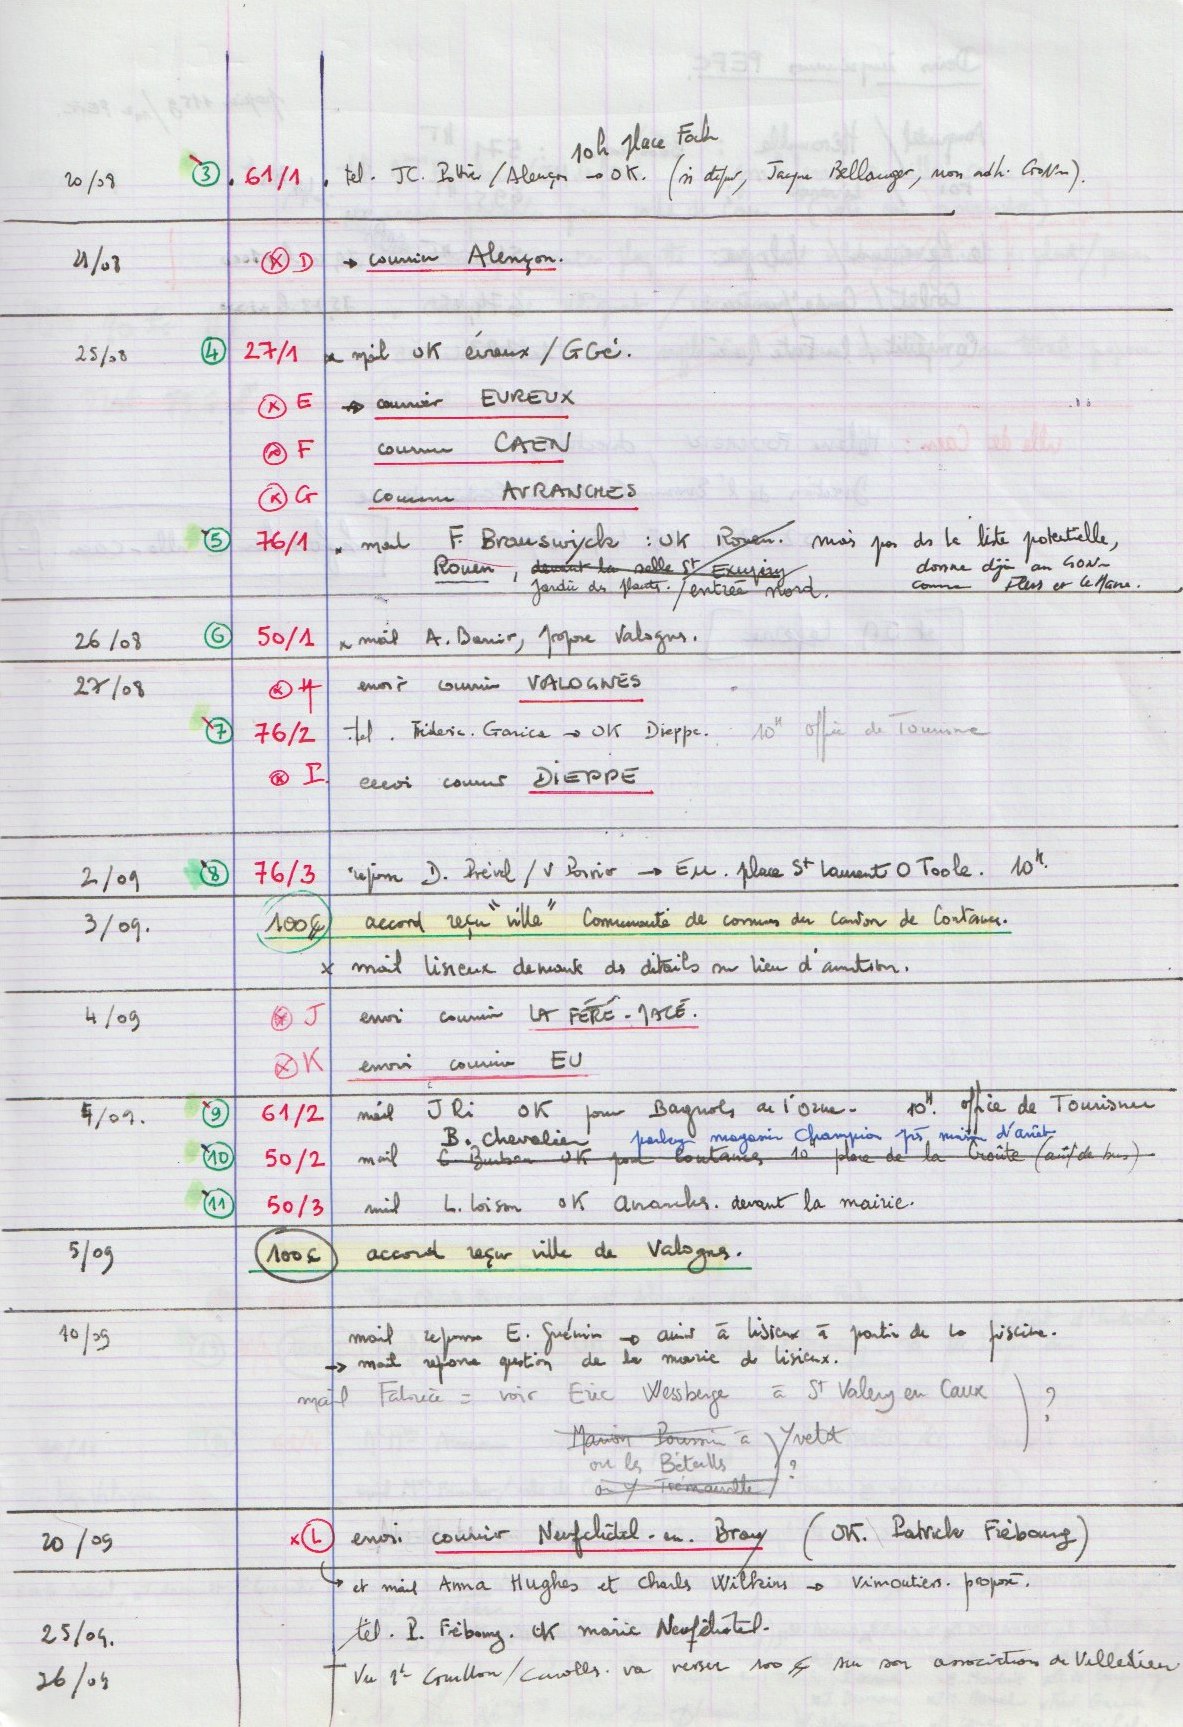 10h place Foch
20/08 3 61/1 tel. JC. /Alençon → OK. (si dispo, Jacques Bellanger, non adh. GONm).
21/08 D → courrier Alençon.
25/08 4 27/1 mail OK évreux / GGé.
E → courrier EVREUX
F courrier CAEN
G courrier AVRANCHES
5 76/1 mail F. Branswyck : OK Rouen. mais pas ds la liste potentielle,
Rouen, devant la salle St Exupéry donne déjà au GONm
jardin des plantes. / entrée nord. comme et le Mans.
26/08 6 50/1 x mail A. , propose Valognes.
27/08 H envoi courrier VALOGNES
7 76/2 tel. Frédéric. → OK Dieppe. 10H office de Tourisme
I envoi courrier DIEPPE
2/09 8 76/3 réponse D. Prével / V → EU. place St Laurent O Toole. 10H.
3/09. 100€ accord reçu "ville" Communauté de communes du canton de Coutances.
x mail lisieux demande des détails sur lieu d'animation.
4/09 J envoi courrier LA FERTÉ-MACÉ.
K envoi courrier EU
/09. 9 61/2 mail J Ri OK pour Bagnols de l'Orne. 10H. office de Tourisme
B. Chevalier parking magasin Champion près maison d'arrêt
10 50/2 mail OK pour Coutances 10H place de la Croûte (arrêt de bus)
11 50/3 mail L. Loison OK Avranches. devant la mairie.
5/09 100€ accord reçu ville de Valognes.
10/09 mail reponse E. Guénin → à lisieux à partir de la piscine.
→ mail reponse question de la mairie de lisieux.
mail Fabrice = voir Eric Wessberge à St Valery en Caux ?
Marion Poussin à Yvetot
ou les Bétaills ?
ou Y
20/09 x L envoi courrier Neufchâtel-en-Bray (OK. Patrick Frébourg)
→ et mail Anna Hughes et Charles Wilkins → Vimoutiers proposé.
25/09. tél. P. Frébourg. OK mairie Neufchâtel.
26/09 Vu / Carolles. va verser 100 € sur son association de Villedieu